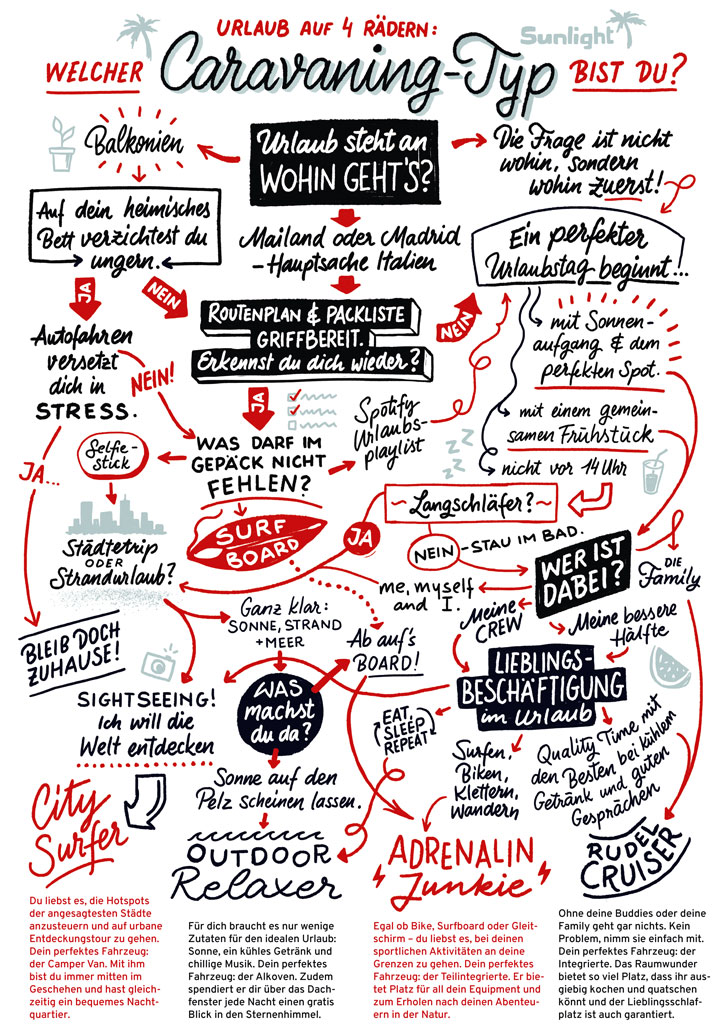 URLAUB AUF 4 RÄDERN:
Sunlight
WELCHER
Caravaning-Typ
BIST DU?
Balkonien
Urlaub steht an
WOHIN GEHT'S?
Die Frage ist nicht
wohin, sondern
wohin zuerst!
Auf dein heimisches
Bett verzichtest du
ungern.
Mailand oder Madrid
– Hauptsache Italien
Ein perfekter
Urlaubstag beginnt...
JA
NEIN
ROUTENPLAN & PACKLISTE
GRIFFBEREIT.
Erkennst du dich wieder?
NEIN
mit Sonnen-
aufgang & dem
perfekten Spot.
Autofahren
versetzt
dich in
STRESS.
NEIN!
JA
Spotify
Urlaubs-
playlist
mit einem gemein-
samen Frühstück
ZZZ
ZZ
nicht vor 14 Uhr
Selfie-
stick
WAS DARF IM
GEPÄCK NICHT
FEHLEN?
JA...
~ Langschläfer? ~
SURF
BOARD
JA
NEIN – STAU IM BAD.
Städtetrip
ODER
Strandurlaub?
WER IST
DABEI?
DIE
Family
me, myself
and I.
Ganz klar:
SONNE, STRAND
+ MEER
Ab auf's
BOARD!
Meine
CREW
Meine bessere
Hälfte
BLEIB DOCH
ZUHAUSE!
LIEBLINGS-
BESCHÄFTIGUNG
im Urlaub
SIGHTSEEING!
Ich will die
Welt entdecken
WAS
machst
du da?
EAT,
SLEEP
REPEAT
Surfen,
Biken,
Klettern,
Wandern
Quality Time mit
den Besten bei kühlem
Getränk und guten
Gesprächen
Sonne auf den
Pelz scheinen lassen.
City
Surfer
OUTDOOR
Relaxer
ADRENALIN
Junkie
RUDEL
CRUISER
Du liebst es, die Hotspots
der angesagtesten Städte
anzusteuern und auf urbane
Entdeckungstour zu gehen.
Dein perfektes Fahrzeug:
der Camper Van. Mit ihm
bist du immer mitten im
Geschehen und hast gleich-
zeitig ein bequemes Nacht-
quartier.
Für dich braucht es nur wenige
Zutaten für den idealen Urlaub:
Sonne, ein kühles Getränk und
chillige Musik. Dein perfektes
Fahrzeug: der Alkoven. Zudem
spendiert er dir über das Dach-
fenster jede Nacht einen gratis
Blick in den Sternenhimmel.
Egal ob Bike, Surfboard oder Gleit-
schirm – du liebst es, bei deinen
sportlichen Aktivitäten an deine
Grenzen zu gehen. Dein perfektes
Fahrzeug: der Teilintegrierte. Er bie-
tet Platz für all dein Equipment und
zum Erholen nach deinen Abenteu-
ern in der Natur.
Ohne deine Buddies oder deine
Family geht gar nichts. Kein
Problem, nimm sie einfach mit.
Dein perfektes Fahrzeug: der
Integrierte. Das Raumwunder
bietet so viel Platz, dass ihr aus-
giebig kochen und quatschen
könnt und der Lieblingsschlaf-
platz ist auch garantiert.